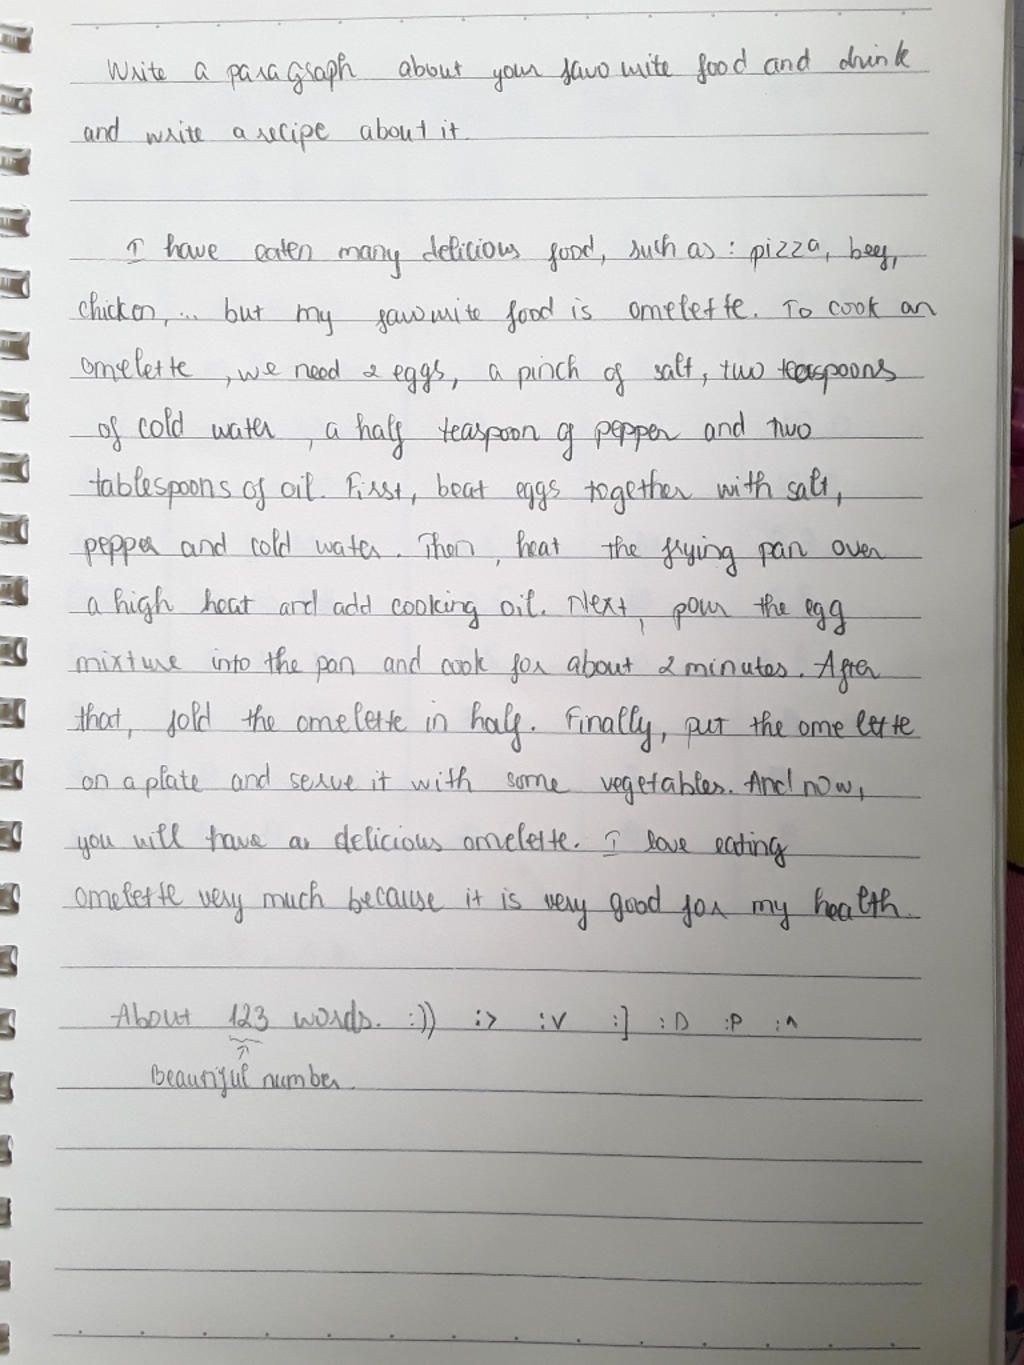 Write a paragraph about your favourite food and drink
and write a recipe about it.
I have eaten many delicious food, such as : pizza, beef,
chicken, ... but my favourite food is omelette. To cook an
omelette , we need 2 eggs, a pinch of salt, two teaspoons
of cold water , a half teaspoon of pepper and two
tablespoons of oil. First, beat eggs together with salt,
pepper and cold water. Then, heat the frying pan over
a high heat and add cooking oil. Next, pour the egg
mixture into the pan and cook for about 2 minutes. After
that, fold the omelette in half. Finally, put the omelette
on a plate and serve it with some vegetables. And now,
you will have a delicious omelette. I love eating
omelette very much because it is very good for my health.
About 123 words. :)) :> :v :] :D :P :^
Beautiful number.